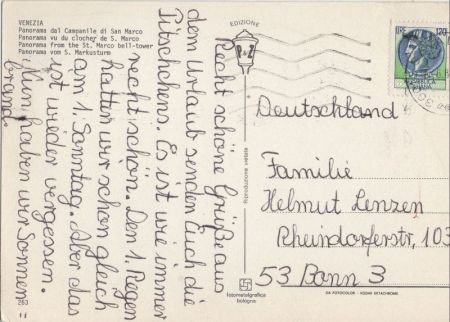 VENEZIA
Panorama dal Campanile di San Marco
Panorama vu du clocher de S. Marco
Panorama from the St. Marco bell-tower
Panorama vom S. Markusturm
EDIZIONE
P&Z
Riproduzione vietata
fotometalgrafica
bologna
DA FOTOCOLOR - KODAK EKTACHROME
263
LIRE 120
Recht schöne Grüße aus
dem Urlaub senden Euch die
Pitschchens. Es ist wie immer
recht schön. Den 1. Regen
hatten wir schon gleich
am 1. Sonntag. Aber das
ist wieder vergessen.
Nun haben wir Sonnen
brand.
Deutschland
Familie
Helmut Lenzen
Rheindorferstr, 103
53 Bonn 3